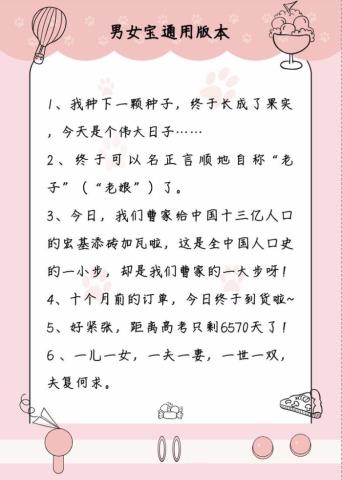 男女宝通用版本
1、我种下一颗种子，终于长成了果实
，今天是个伟大日子……
2、终于可以名正言顺地自称“老
子”（“老娘”）了。
3、今日，我们曹家给中国十三亿人口
的宏基添砖加瓦啦，这是全中国人口史
的一小步，却是我们曹家的一大步呀！
4、十个月前的订单，今日终于到货啦~
5、好紧张，距离高考只剩6570天了！
6、一儿一女，一夫一妻，一世一双，
夫复何求。